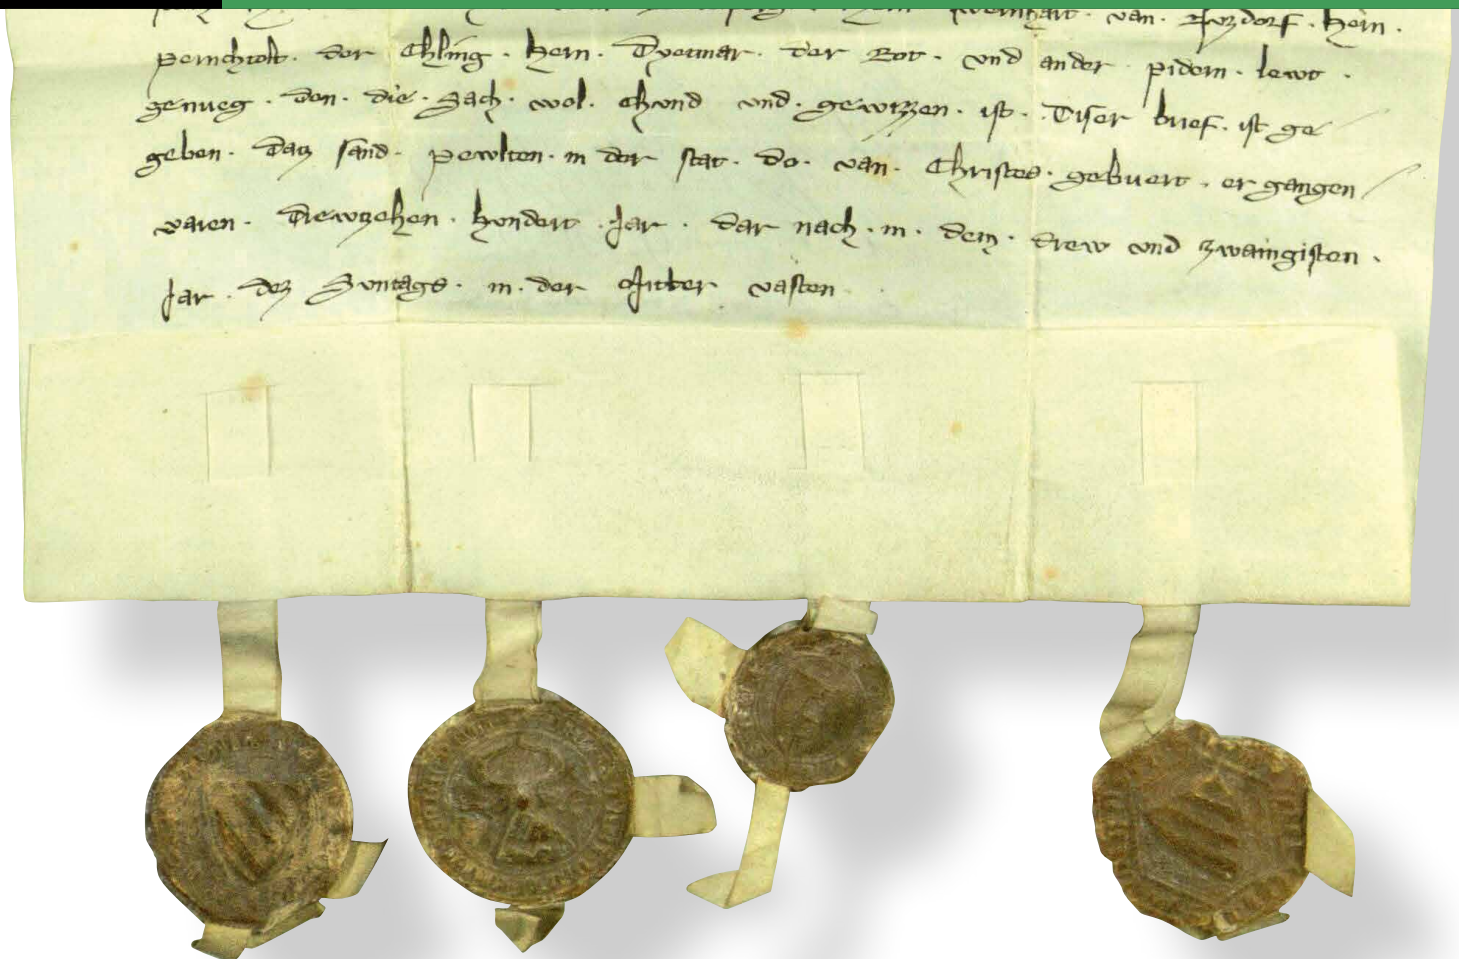 wernhart · van · hern ·
pernchtolt · der Chling · hern · Dyetmar · der Rot · vnd ander pidern · lewt ·
genueg · den · die · Sach · wol · chvnd vnd · gewizzen · ist · Diser brief · ist ge
geben · Datz sand · pewlten · in der stat · do · van · Christes · gebuert · er gangen
waren · Drewzehen · hvndert · Jar · dar nach · in · dem · drew vnd zwaingisten ·
Jar · dez Svntags · in · der Mitter vasten